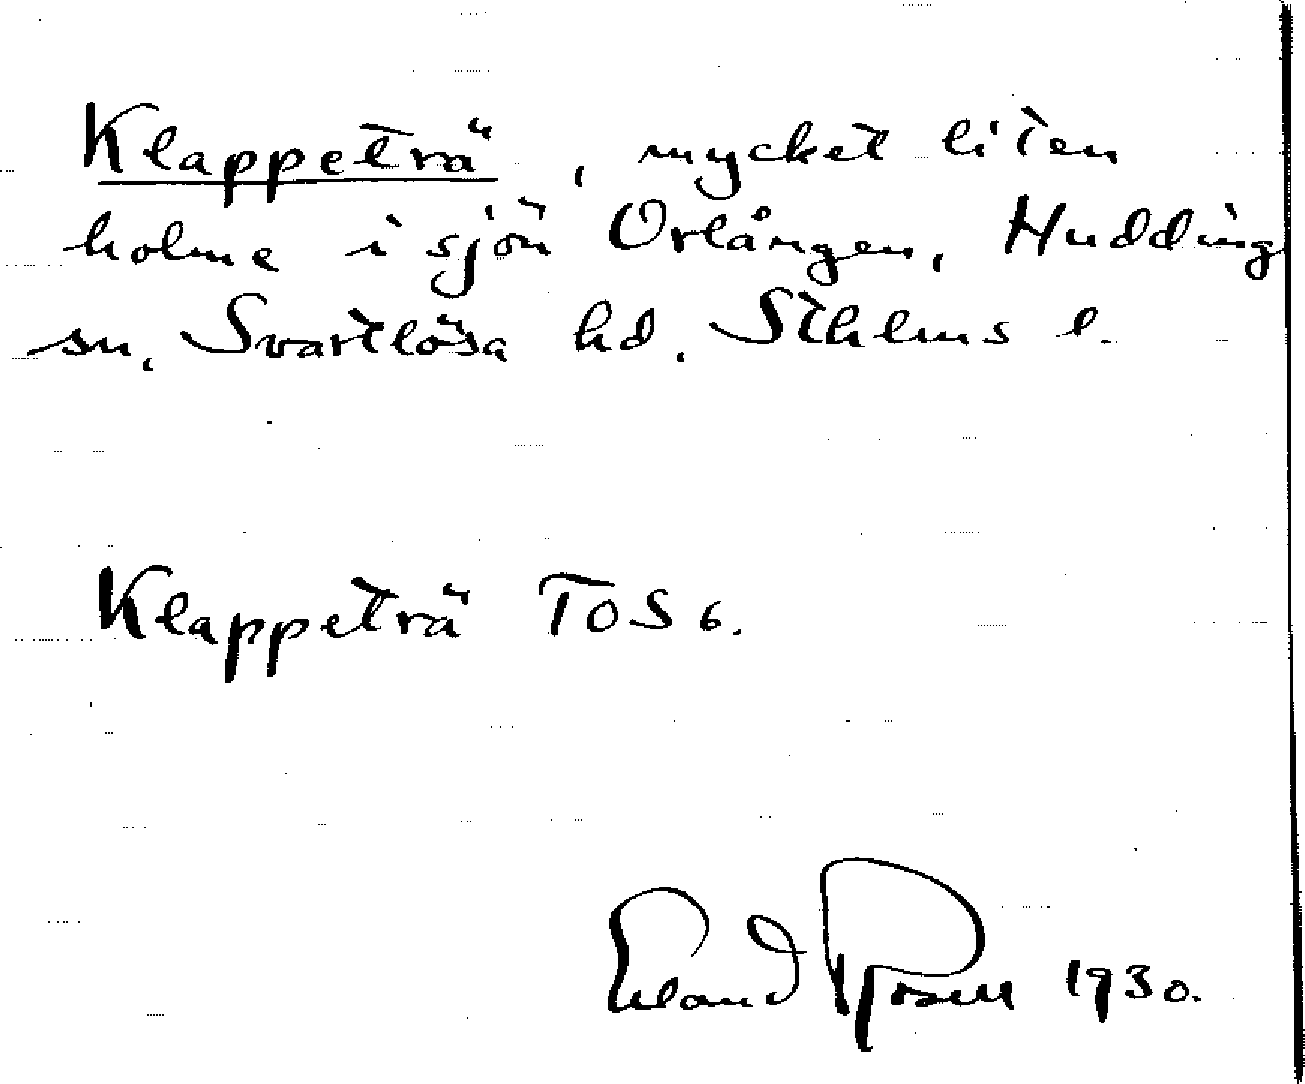 Klappeträ, mycket liten
holme i sjön Orlången, Hudding
sn, Svartlösa hd, Sthlms l.
Klappeträ TOS 6.
Erland Rosell 1930.